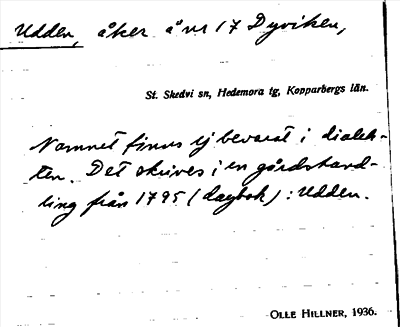 Udden, åker å nr 17 Dyviken,
St. Skedvi sn, Hedemora tg, Kopparbergs län.
Namnet finns ej bevarat i dialek-
ten. Det skrives i en gårdshand-
ling från 1795 (dagbok): Udden.
OLLE HILLNER, 1936.